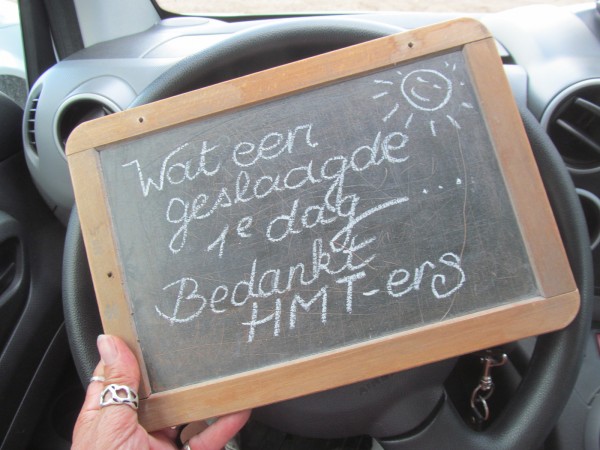 Wat een
geslaagde
1e dag ...
Bedankt
HMT-ers